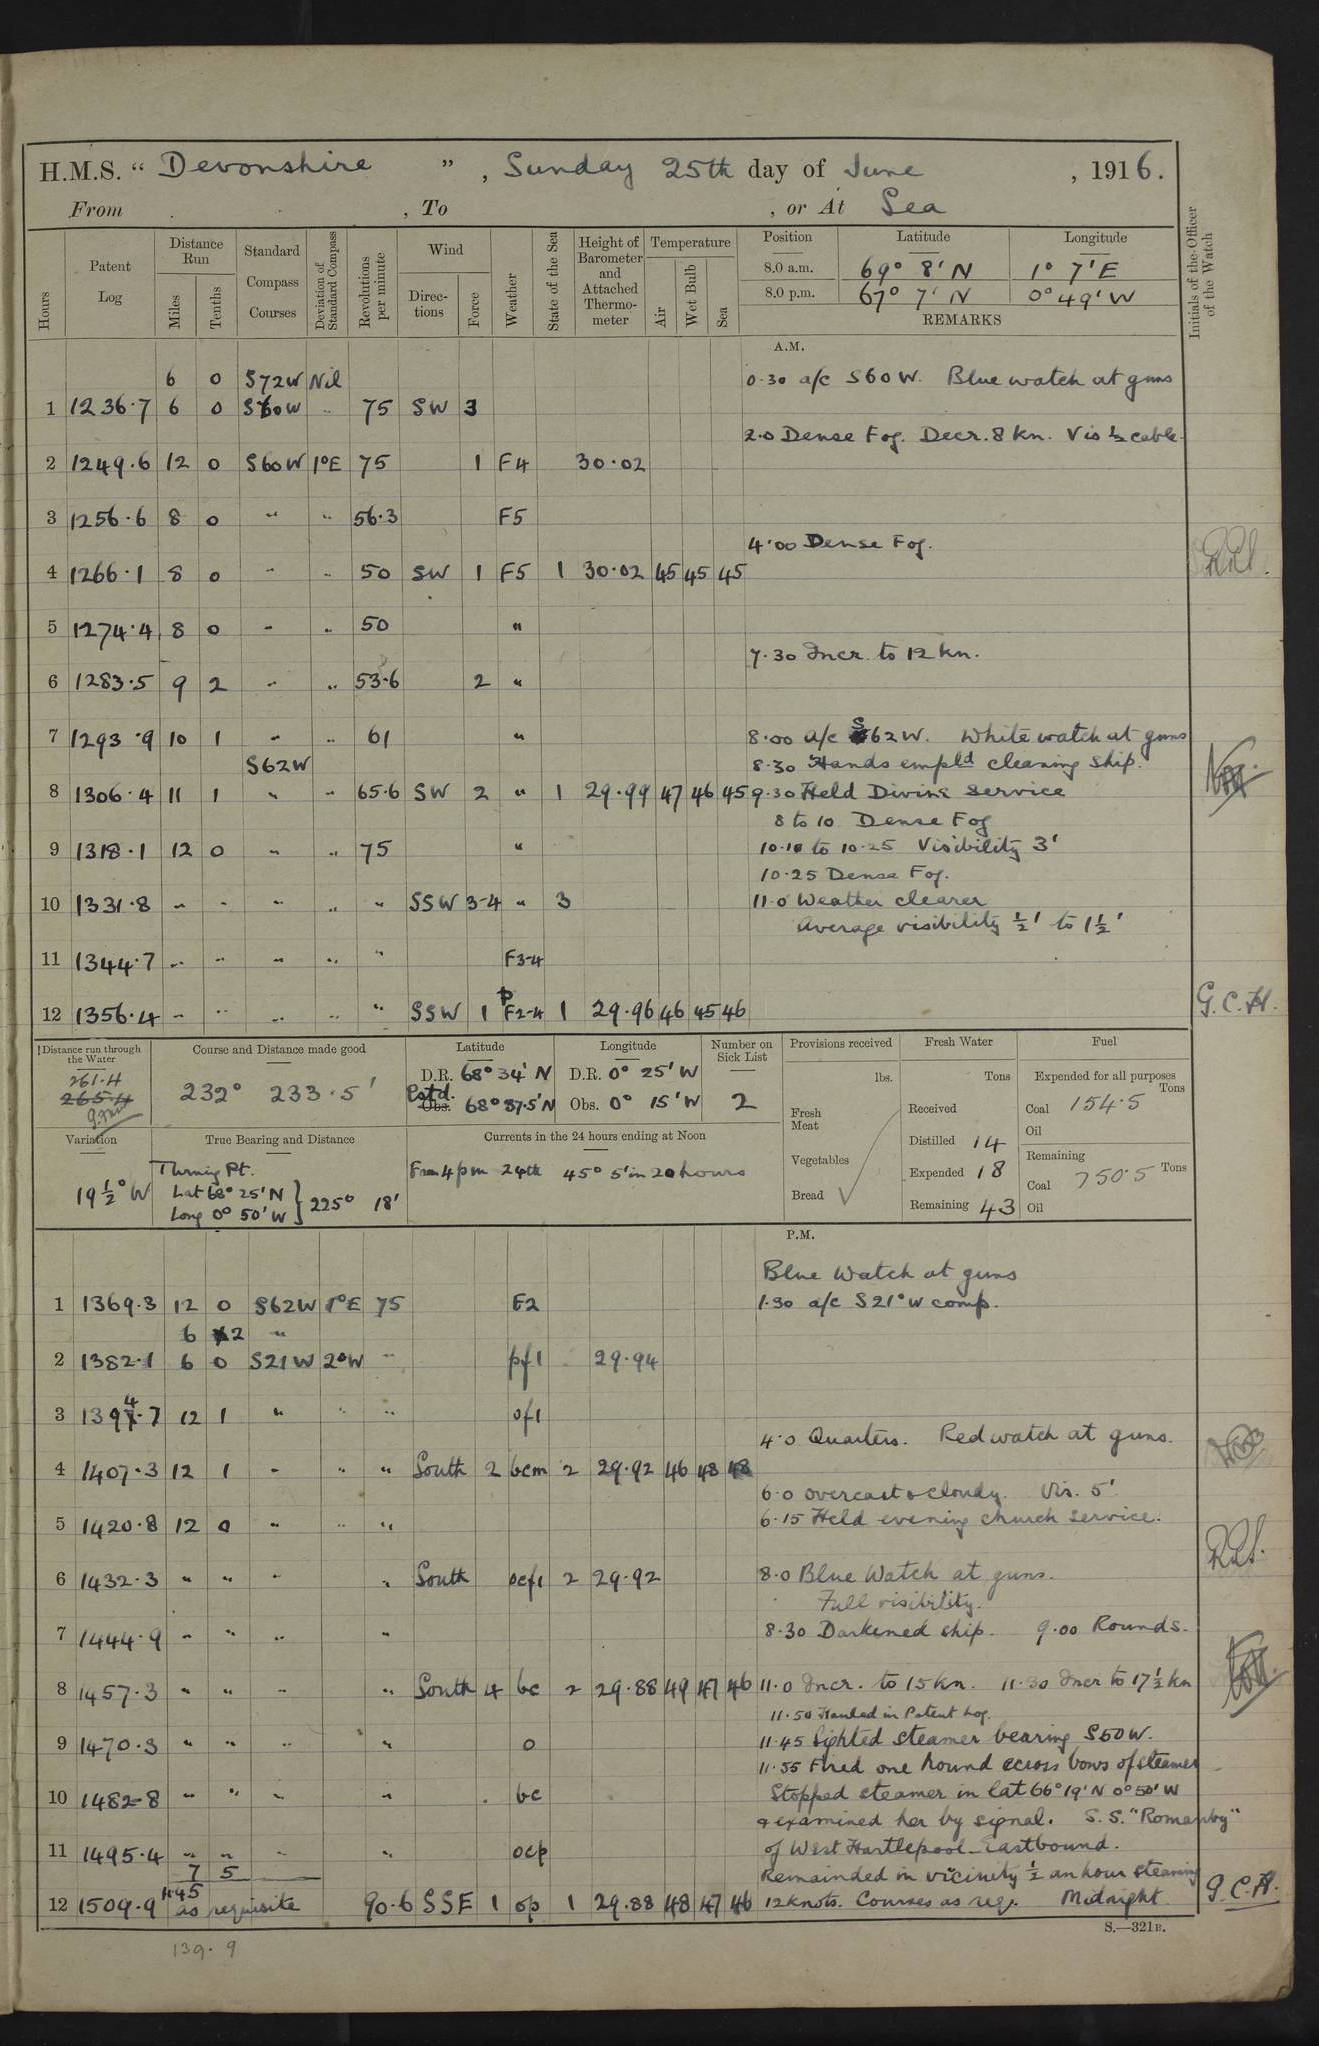 H.M.S. "Devonshire", Sunday 25th day of June, 1916.
From , To , or At Sea
Hours Patent Log Distance Run Miles Tenths Standard Compass Courses Deviation of Standard Compass Revolutions per minute Wind Directions Force Weather State of the Sea Height of Barometer and Attached Thermometer Temperature Air Wet Bulb Sea Position Latitude Longitude Initials of the Officer of the Watch
8.0 a.m. 69° 8' N 1° 7' E
8.0 p.m. 67° 7' N 0° 49' W
REMARKS
A.M.
6 0 S72W Nil 0.30 a/c S60W. Blue watch at guns
1 1236.7 6 0 S60W " 75 SW 3
2.0 Dense Fog. Decr. 8 kn. Vis ½ cable.
2 1249.6 12 0 S60W 1°E 75 1 F4 30.02
3 1256.6 8 0 " " 56.3 F5
4.00 Dense Fog.
4 1266.1 8 0 " " 50 SW 1 F5 1 30.02 45 45 45
5 1274.4 8 0 " " 50 "
7.30 Incr. to 12 kn.
6 1283.5 9 2 " " 53.6 2 "
7 1293.9 10 1 " " 61 " 8.00 a/c S62W. White watch at guns
S62W 8.30 Hands empld cleaning ship.
8 1306.4 11 1 " " 65.6 SW 2 " 1 29.99 47 46 45 9.30 Held Divine Service
8 to 10 Dense Fog
9 1318.1 12 0 " " 75 " 10.10 to 10.25 Visibility 3'
10.25 Dense Fog.
10 1331.8 " " " " " SSW 3-4 " 3 11.0 Weather clearer
Average visibility ½' to 1½'
11 1344.7 " " " " " F3-4
12 1356.4 " " " " " SSW 1 F2-4 1 29.96 46 45 46 G.C.H.
Distance run through the Water Course and Distance made good Latitude Longitude Number on Sick List Provisions received Fresh Water Fuel
261.4 232° 233.5' D.R. 68° 34' N D.R. 0° 25' W lbs. Tons Expended for all purposes Tons
265.4 Estd. Obs. 68° 37.5' N Obs. 0° 15' W 2 Fresh Meat Received Coal 154.5
Oil
Variation True Bearing and Distance Currents in the 24 hours ending at Noon Distilled 14
19½° W Turning Pt. From 4 pm 24th 45° 5' in 20 hours Vegetables Expended 18 Remaining Tons
Lat 68° 25' N 225° 18' Coal 750.5
Long 0° 50' W Bread Remaining 43 Oil
P.M.
Blue Watch at guns
1 1369.3 12 0 S62W 1°E 75 F2 1.30 a/c S21°W comp.
6 2 "
2 1382.1 6 0 S21W 2°W " pf1 29.94
3 1394.7 12 1 " " " of1
4.0 Quarters. Red watch at guns.
4 1407.3 12 1 " " " South 2 bcm 2 29.92 46 48 48
6.0 overcast & cloudy. Vis. 5'
5 1420.8 12 0 " " " 6.15 Held evening church service.
6 1432.3 " " " " South ocf1 2 29.92 8.0 Blue Watch at guns.
Full visibility.
7 1444.9 " " " " 8.30 Darkened ship. 9.00 Rounds.
8 1457.3 " " " " South 4 bc 2 29.88 49 47 46 11.0 Incr. to 15 kn. 11.30 Incr to 17½ kn
11.50 Hauled in Patent Log.
9 1470.3 " " " " o 11.45 Sighted steamer bearing S50W.
11.55 Fired one round across bows of steamer
10 1482.8 " " " " bc Stopped steamer in lat 66° 19' N 0° 50' W
& examined her by signal. S.S. "Romanby"
11 1495.4 " " " " ocp of West Hartlepool - Eastbound.
7 5 Remainded in vicinity ½ an hour steaming
12 1509.9 11.45 as requisite 90.6 SSE 1 op 1 29.88 48 47 46 12 knots. Courses as req. Midnight G.C.H.
S.—321B.
139.9